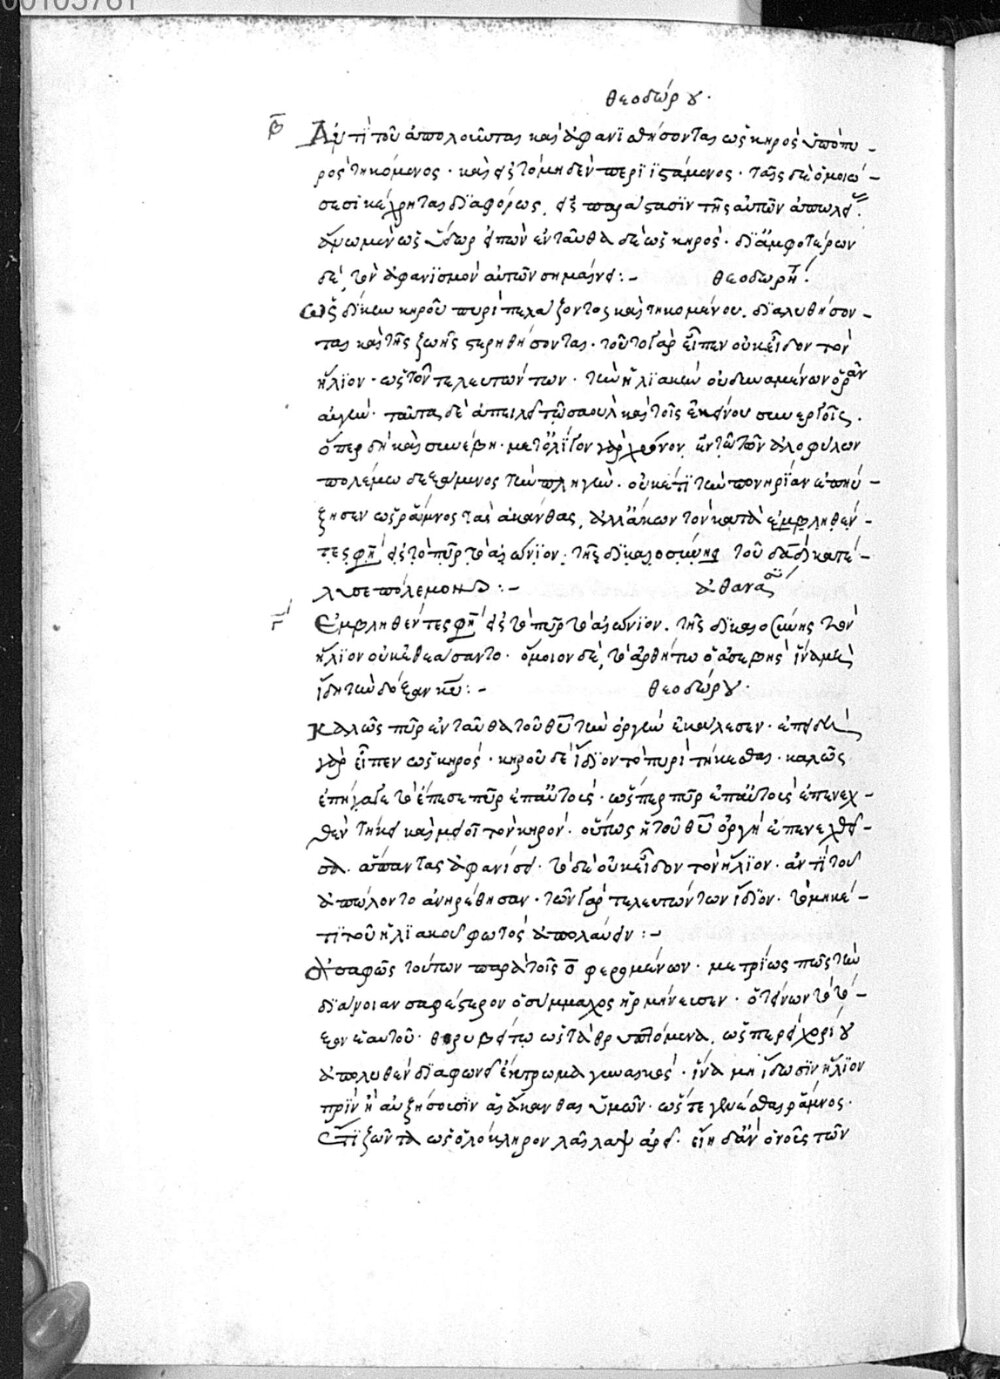 00105761
θεοδώρου.
β Ἀντὶ τοῦ ἀπολοῦνται καὶ ἀφανισθήσονται ὡς κηρὸς ὑπὸ πυ-
ρὸς τηκόμενος· καὶ εἰς τὸ μηδὲν περιϊστάμενος· ταῖς δὲ ὁμοιώ-
σεσι κέχρηται διαφόρως, εἰς παράστασιν τῆς αὐτῶν ἀπωλεί.
ἄνω μὲν ὡς ὕδωρ εἰπὼν ἐνταῦθα δὲ ὡς κηρός· δι' ἀμφοτέρων
δὲ, τὸν ἀφανισμὸν αὐτῶν σημαίνει:- θεοδωρήτ
Ὡς δίκην κηροῦ πυρὶ πελάζοντος καὶ τηκομένου. διαλυθήσον-
ται καὶ τῆς ζωῆς στερηθήσονται· τοῦτο γὰρ εἶπεν οὐκ εἶδον τὸν
ἥλιον· ὡς τῶν τελευτώντων· τὴν ἡλιακὴν οὐ δυναμένων ὁρᾶν
αὐγήν· ταῦτα δὲ ἀπειλεῖ τῷ σαοὺλ καὶ τοῖς ἐκείνου συνεργοῖς.
ὅπερ δὴ καὶ συνέβη· μετ' ὀλίγον γὰρ χρόνον ἐν τῷ τῶν ἀλλοφύλων
πολέμῳ δεξάμενος τὴν πληγὴν· οὐκέτι τὴν πονηρίαν ἐπηύ-
ξησεν ὡς ῥάμνος τὰς ἀκάνθας, ἀλλ' ἄκων τὸν κατὰ ἐμβληθέν-
τες φη εἰς τὸ πῦρ τὸ αἰώνιον· τῆς δικαιοσύνης τοῦ δαδ κατέ-
λυσε πόλεμον:- ἀθανασίου
γ Ἐμβληθέντες φη εἰς τὸ πῦρ τὸ αἰώνιον. τῆς δικαιοσύνης τὸν
ἥλιον οὐκ ἐθεάσαντο· ὅμοιον δὲ, τὸ ἀρθήτω ὁ ἀσεβὴς ἵνα μὴ
ἴδῃ τὴν δόξαν κυ:- θεοδώρου.
Καλῶς πῦρ ἐνταῦθα τοῦ θυ τὴν ὀργὴν ἐκάλεσεν· ἐπειδὴ
γὰρ εἶπεν ὡς κηρός· κηροῦ δὲ ἴδιον τὸ πυρὶ τήκεσθαι· καλῶς
ἐπήγαγε τὸ ἔπεσε πῦρ ἐπ' αὐτοὺς· ὥσπερ πῦρ ἐπ' αὐτοῖς ἐπενεχ-
θὲν τήκει καὶ μειοῖ τὸν κηρόν· οὕτως ἡ τοῦ θυ ὀργὴ ἐπενελθοῦ-
σα. ἅπαντας ἀφανίσει· τὸ δὲ οὐκ εἶδον τὸν ἥλιον· ἀντὶ τοῦ
ἀπώλοντο ἀνῃρέθησαν· τῶν γὰρ τελευτώντων ἴδιον· τὸ μηκέ-
τι τοῦ ἡλιακοῦ φωτὸς ἀπολαύειν:-
Ἀσαφῶς τούτων παρὰ τοῖς ο φερομένων· μετρίως πως τὴν
διάνοιαν σαφέστερον ὁ σύμμαχος ἡρμήνευσεν·
ἑαυτοῦ·
ἵνα μὴ ἴδωσιν ἥλιον
πρὶν ἢ αὐξήσουσιν αἱ ἄκανθαι ὑμῶν· ὥστε γενέσθαι ῥάμνος·
Ἔτι ζῶντα ὡς ὁλόκληρον λαῖλαψ ἀρεῖ.